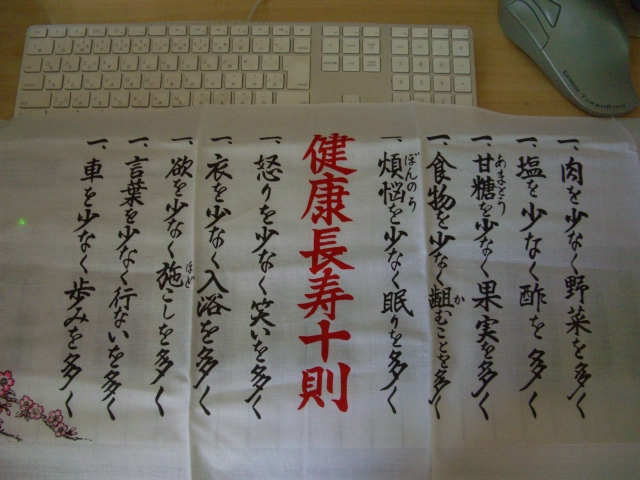 一、肉を少なく野菜を多く
一、塩を少なく酢を多く
一、甘糖を少なく果実を多く
あまとう
一、食物を少なく齟むことを多く
か
一、煩悩を少なく眠りを多く
ぼんのう
健康長寿十則
一、怒りを少なく笑いを多く
一、衣を少なく入浴を多く
一、欲を少なく施こしを多く
ほど
一、言葉を少なく行ないを多く
一、車を少なく歩みを多く